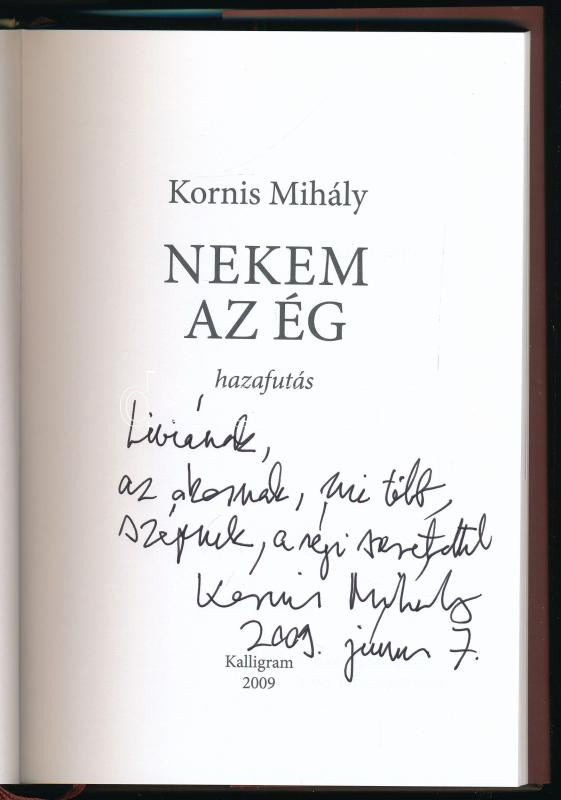 Kornis Mihály
NEKEM
AZ ÉG
hazafutás
Líviának,
az okosnak, mi több,
szépnek, a régi szeretettel
Kornis Mihály
2009. június 7.
Kalligram
2009